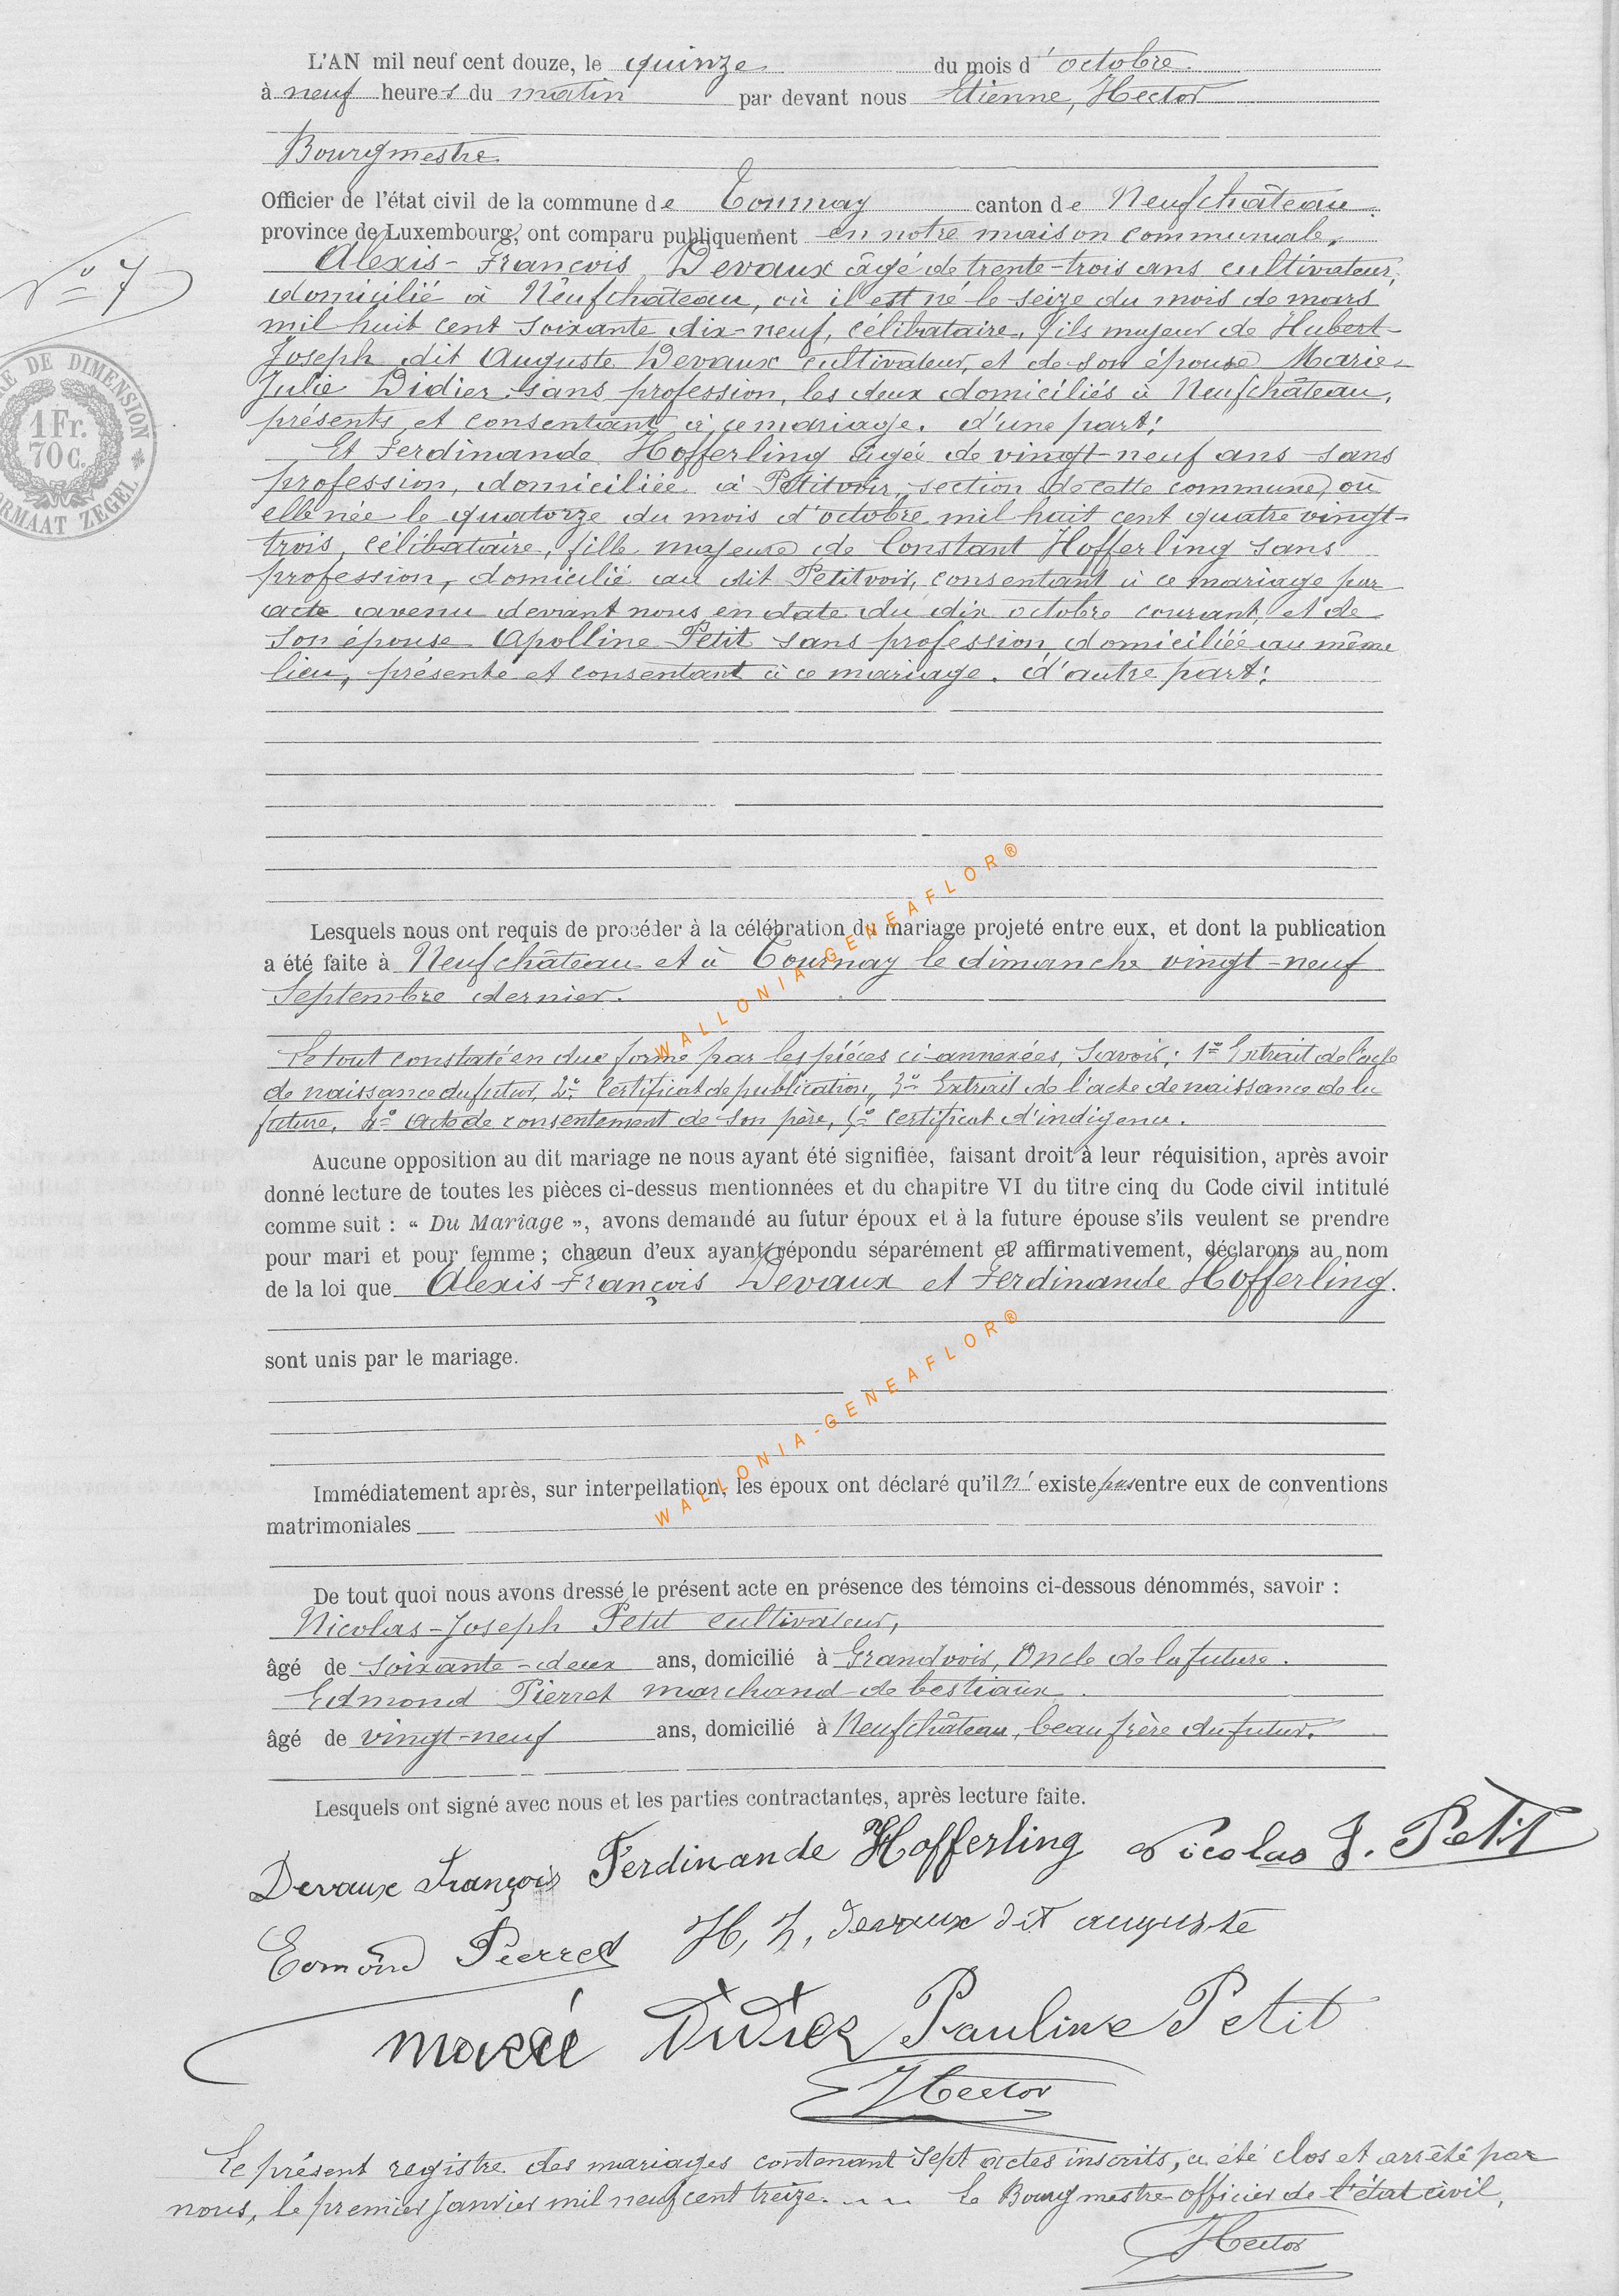 L'AN mil neuf cent douze, le quinze du mois d'octobre
à neuf heures du matin par devant nous Etienne, Hector
Bourgmestre
Officier de l'état civil de la commune de Tournay canton de Neufchâteau
province de Luxembourg, ont comparu publiquement en notre maison communale,
Alexis-François Devaux âgé de trente-trois ans cultivateur,
N° 7
domicilié à Neufchâteau, où il est né le seize du mois de mars
mil huit cent soixante dix-neuf, célibataire, fils majeur de Hubert-
Joseph dit Auguste Devaux cultivateur, et de son épouse Marie-
Julie Didier sans profession, les deux domiciliés à Neufchâteau,
présents et consentant à ce mariage. d'une part;
DE DIMENSION
1 Fr.
70 C.
FORMAAT ZEGEL
Et Ferdinande Hofferling âgée de vingt-neuf ans sans
profession, domiciliée à Petitvoir, section de cette commune, où
elle née le quatorze du mois d'octobre mil huit cent quatre vingt-
trois, célibataire, fille majeure de Constant Hofferling sans
profession, domicilié au dit Petitvoir, consentant à ce mariage par
acte avenu devant nous en date du dix octobre courant, et de
son épouse Apolline Petit sans profession, domiciliée au même
lieu, présente et consentant à ce mariage. d'autre part;
Lesquels nous ont requis de procéder à la célébration du mariage projeté entre eux, et dont la publication
a été faite à Neufchâteau et à Tournay le dimanche vingt-neuf
Septembre dernier.
WALLONIA-GENEAFLOR®
Le tout constaté en due forme par les pièces ci-annexées, Savoir: 1° Extrait de l'acte
de naissance du futur, 2° Certificat de publication, 3° Extrait de l'acte de naissance de la
future, 4° acte de consentement de son père, 5° certificat d'indigence.
Aucune opposition au dit mariage ne nous ayant été signifiée, faisant droit à leur réquisition, après avoir
donné lecture de toutes les pièces ci-dessus mentionnées et du chapitre VI du titre cinq du Code civil intitulé
comme suit : « Du Mariage », avons demandé au futur époux et à la future épouse s'ils veulent se prendre
pour mari et pour femme ; chacun d'eux ayant répondu séparément et affirmativement, déclarons au nom
de la loi que Alexis-François Devaux et Ferdinande Hofferling.
sont unis par le mariage.
WALLONIA-GENEAFLOR®
Immédiatement après, sur interpellation, les époux ont déclaré qu'il n'existe pas entre eux de conventions
matrimoniales
De tout quoi nous avons dressé le présent acte en présence des témoins ci-dessous dénommés, savoir :
Nicolas-Joseph Petit cultivateur,
âgé de soixante-deux ans, domicilié à Grandvoir, Oncle de la future.
Edmond Pierret marchand de bestiaux
âgé de vingt-neuf ans, domicilié à Neufchâteau, beau frère du futur.
Lesquels ont signé avec nous et les parties contractantes, après lecture faite.
Devaux François Ferdinande Hofferling Nicolas J. Petit
Edmond Pierret H, J, devaux dit auguste
Marie Didier Pauline Petit
E Hector
Le présent registre des mariages contenant sept actes inscrits, a été clos et arrêté par
nous, le premier Janvier mil neuf cent treize. Le Bourgmestre officier de l'état civil,
E Hector